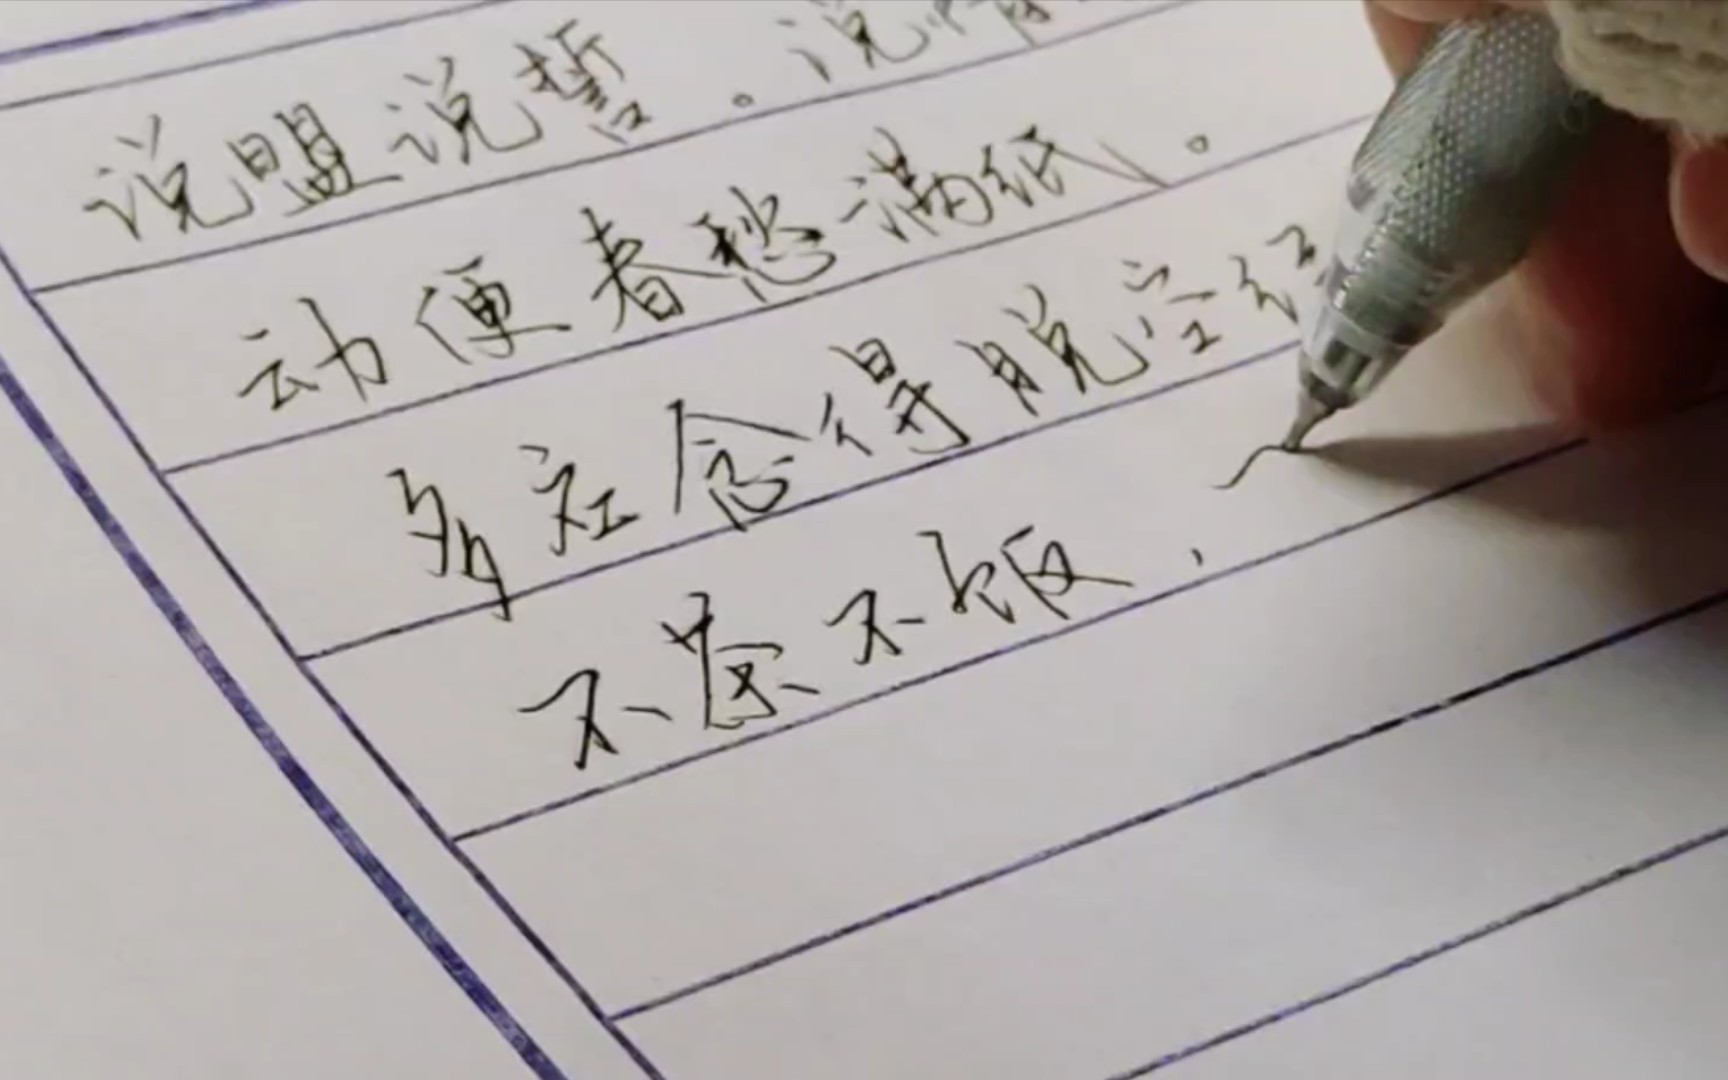 说盟说誓。说情
动便春愁满纸。
多应念得脱空经
不茶不饭，